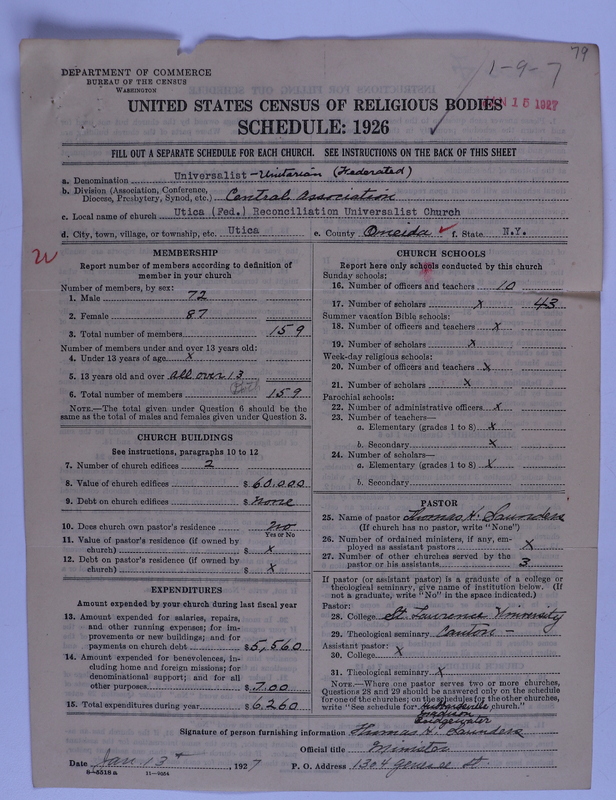 79
1-9-7
DEPARTMENT OF COMMERCE
BUREAU OF THE CENSUS
WASHINGTON
JAN 15 1927
UNITED STATES CENSUS OF RELIGIOUS BODIES
SCHEDULE: 1926
FILL OUT A SEPARATE SCHEDULE FOR EACH CHURCH. SEE INSTRUCTIONS ON THE BACK OF THIS SHEET
a. Denomination Universalist-Unitarian (Federated)
b. Division (Association, Conference, Diocese, Presbytery, Synod, etc.) Central Association
c. Local name of church Utica (Fed.) Reconciliation Universalist Church
d. City, town, village, or township, etc. Utica e. County Oneida f. State N.Y.
MEMBERSHIP
Report number of members according to definition of
member in your church
Number of members, by sex:
1. Male 72
2. Female 87
3. Total number of members 159
Number of members under and over 13 years old:
4. Under 13 years of age x
5. 13 years old and over all over 13
6. Total number of members 159
NOTE.—The total given under Question 6 should be the
same as the total of males and females given under Question 3.
CHURCH BUILDINGS
See instructions, paragraphs 10 to 12
7. Number of church edifices 2
8. Value of church edifices $ 60.000
9. Debt on church edifices $ None
10. Does church own pastor's residence No
Yes or No
11. Value of pastor's residence (if owned by
church) $ x
12. Debt on pastor's residence (if owned by
church) $ x
EXPENDITURES
Amount expended by your church during last fiscal year
13. Amount expended for salaries, repairs,
and other running expenses; for im-
provements or new buildings; and for
payments on church debt $ 5,560
14. Amount expended for benevolences, in-
cluding home and foreign missions; for
denominational support; and for all
other purposes $ 700
15. Total expenditures during year $ 6,260
CHURCH SCHOOLS
Report here only schools conducted by this church
Sunday schools:
16. Number of officers and teachers 10
17. Number of scholars x 43
Summer vacation Bible schools:
18. Number of officers and teachers x
19. Number of scholars x
Week-day religious schools:
20. Number of officers and teachers x
21. Number of scholars x
Parochial schools:
22. Number of administrative officers x
23. Number of teachers—
a. Elementary (grades 1 to 8) x
b. Secondary x
24. Number of scholars—
a. Elementary (grades 1 to 8) x
b. Secondary
PASTOR
25. Name of pastor Thomas H. Saunders
(If church has no pastor, write "None")
26. Number of ordained ministers, if any, em-
ployed as assistant pastors x
27. Number of other churches served by the
pastor or his assistants 3
If pastor (or assistant pastor) is a graduate of a college or
theological seminary, give name of institution below. (If
not a graduate, write "No" in the space indicated.)
Pastor:
28. College St. Lawrence University
29. Theological seminary Canton -
Assistant pastor:
30. College x
31. Theological seminary x
NOTE.—Where one pastor serves two or more churches,
Questions 28 and 29 should be answered only on the schedule
for one of the churches; on the schedules for the other churches,
write "See schedule for Hubbardsville church."
Madison
Bridgewater
Signature of person furnishing information Thomas H. Saunders
Official title Minister
Date Jan 13th, 1927 P. O. Address 1304 Genesee St.
8-5518 a 11-9054